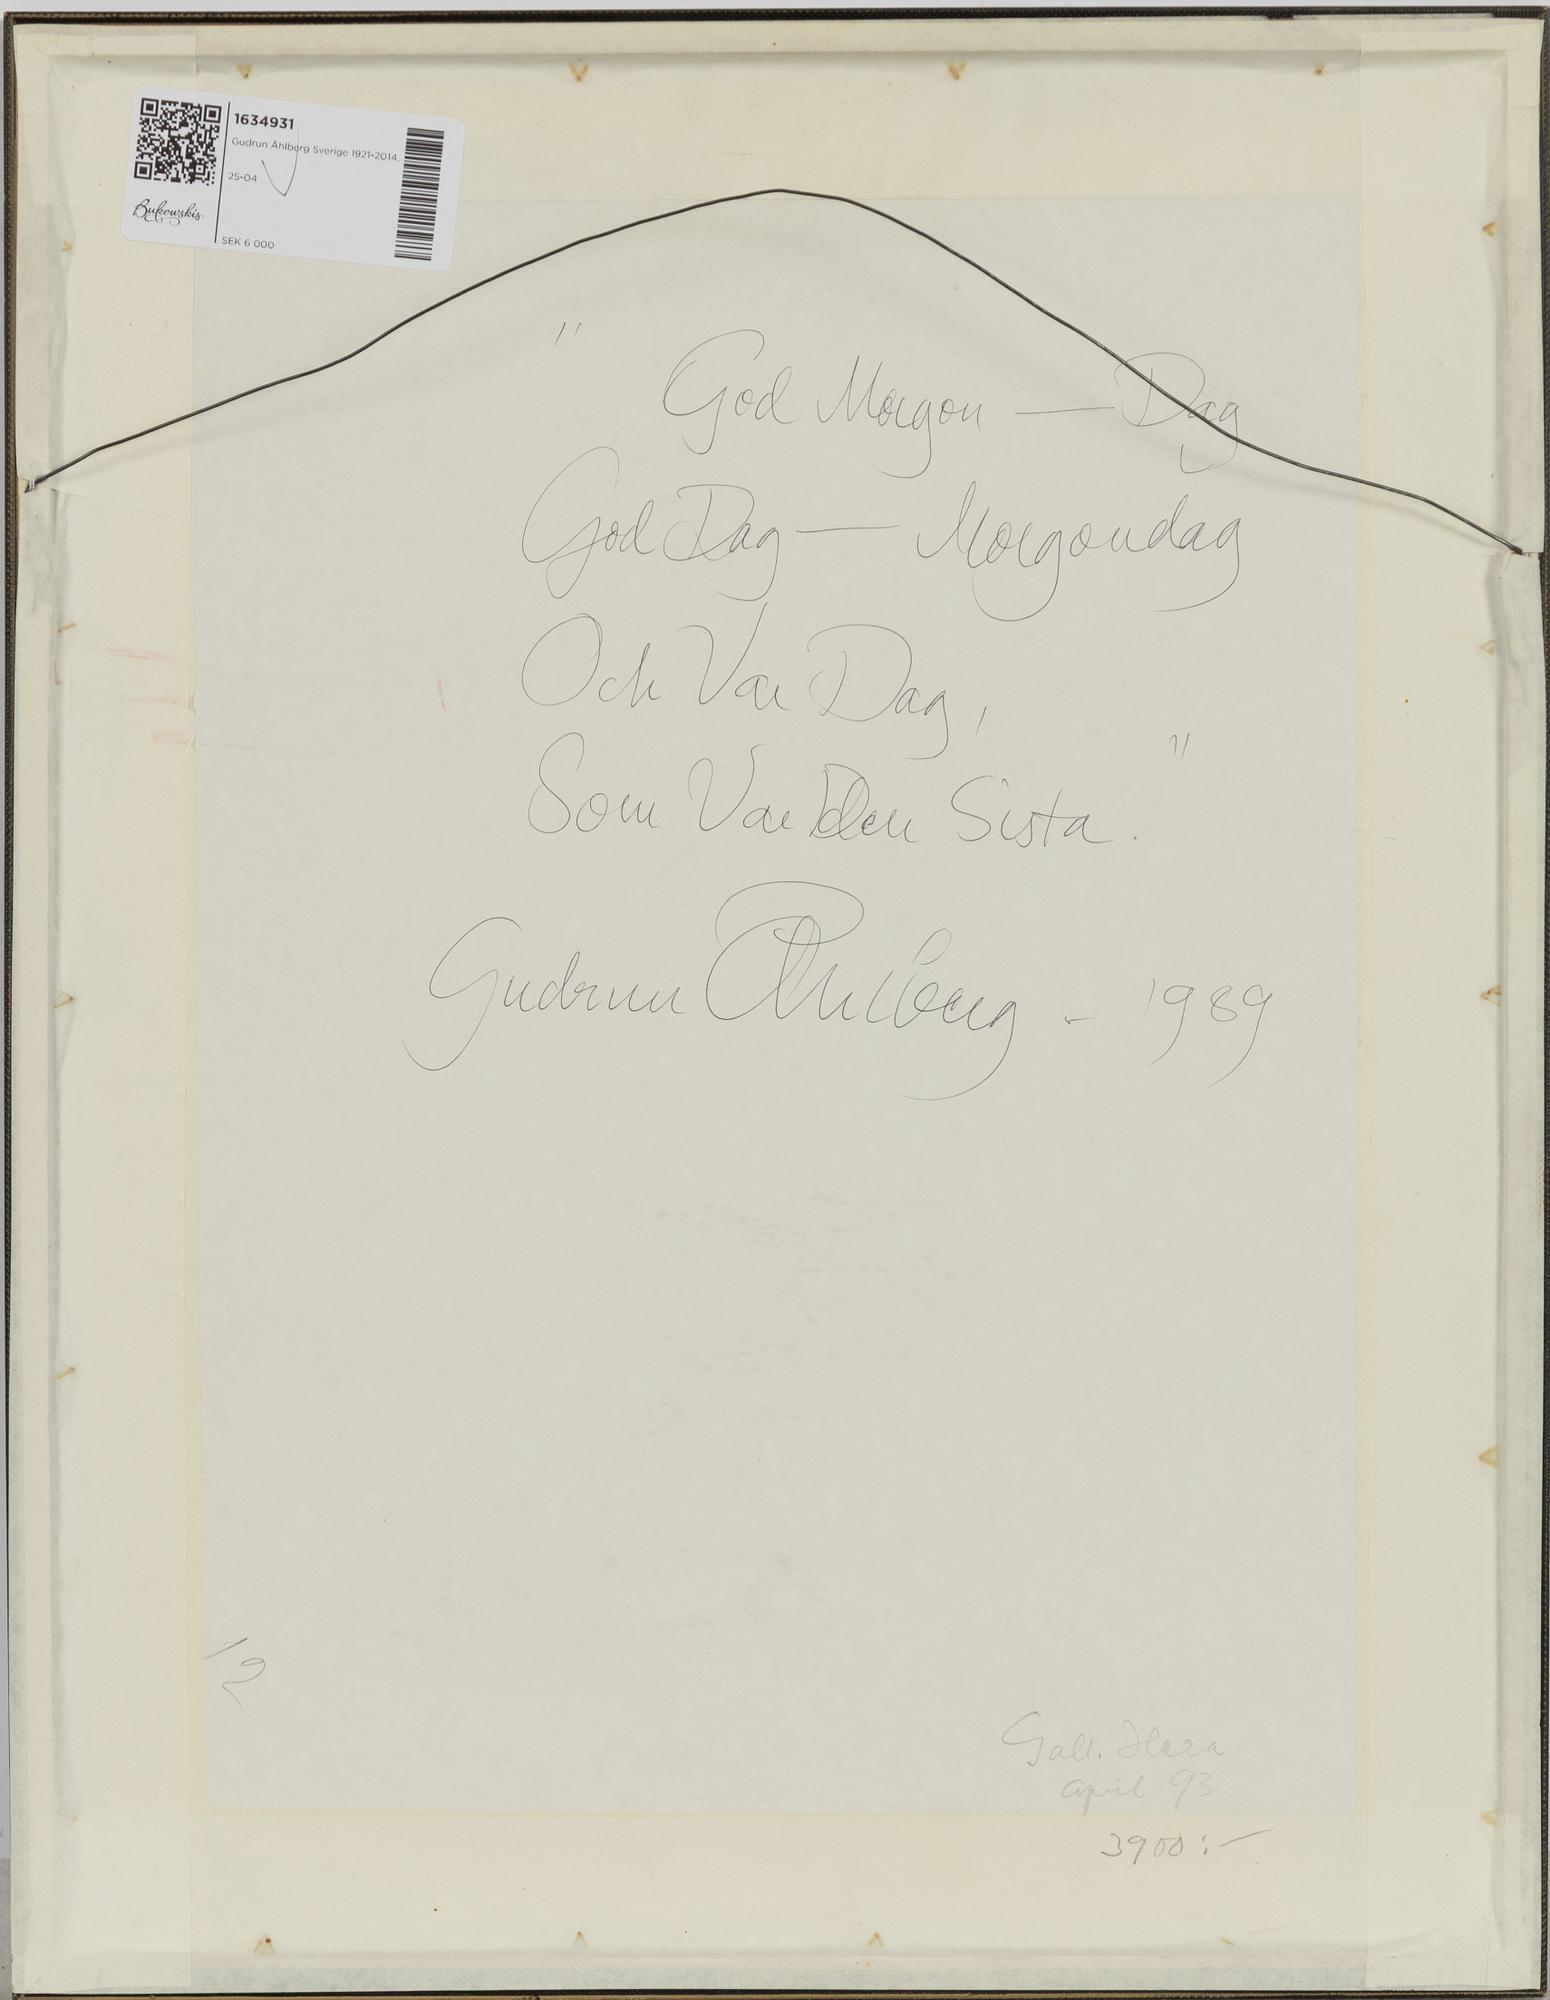 1634931
Gudrun Åhlberg Sverige 1921-2014.
25-04
Bukowskis
SEK 6 000
" God Morgon — Dag
God Dag — Morgondag
Och Var Dag,
Som Var Den Sista. "
Gudrun Åhlberg - 1989
12
Gall. Hera
april 93
3900:-